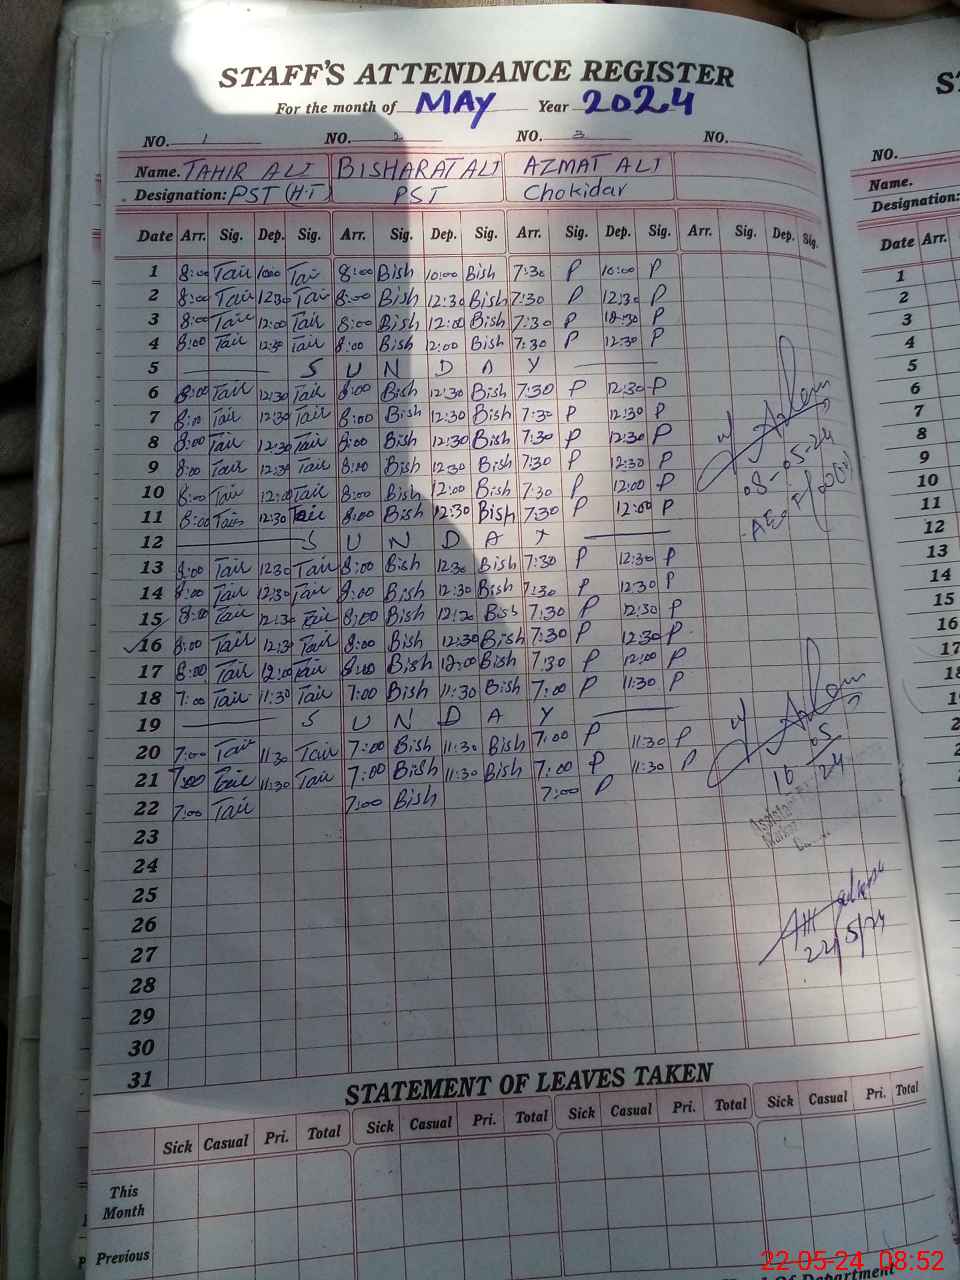 STAFF'S ATTENDANCE REGISTER
For the month of MAY Year 2024
NO. 1 NO. 2 NO. 3 NO.
Name. TAHIR ALI BISHARAT ALI AZMAT ALI
Designation: PST (H.T) PST Chokidar
Date Arr. Sig. Dep. Sig. Arr. Sig. Dep. Sig. Arr. Sig. Dep. Sig. Arr. Sig. Dep. Sig.
1 8:00 Tair 10:00 Tair 8:00 Bish 10:00 Bish 7:30 P 10:00 P
2 8:00 Tair 12:30 Tair 8:00 Bish 12:30 Bish 7:30 P 12:30 P
3 8:00 Tair 12:00 Tair 8:00 Bish 12:00 Bish 7:30 P P
4 8:00 Tair 12:30 Tair 8:00 Bish 12:00 Bish 7:30 P 12:30 P
5 S U N D A Y
6 8:00 Tair 12:30 Tair 8:00 Bish 12:30 Bish 7:30 P 12:30 P
7 8:00 Tair 12:30 Tair 8:00 Bish 12:30 Bish 7:30 P 12:30 P
8 8:00 Tair 12:30 Tair 8:00 Bish 12:30 Bish 7:30 P 12:30 P
9 8:00 Tair 12:30 Tair 8:00 Bish 12:30 Bish 7:30 P 12:30 P
10 8:00 Tair 12:00 Tair 8:00 Bish 12:00 Bish 7:30 P 12:00 P
11 8:00 Tair 12:30 Tair 8:00 Bish 12:30 Bish 7:30 P 12:00 P
12 S U N D A Y
13 8:00 Tair 12:30 Tair 8:00 Bish 12:30 Bish 7:30 P 12:30 P
14 8:00 Tair 12:30 Tair 8:00 Bish 12:30 Bish 7:30 P 12:30 P
15 8:00 Tair 12:30 Tair 8:00 Bish Bish 7:30 P 12:30 P
16 8:00 Tair 12:30 Tair 8:00 Bish 12:30 Bish 7:30 P 12:30 P
17 8:00 Tair 12:00 Tair 8:00 Bish 12:00 Bish 7:30 P 12:00 P
18 7:00 Tair 11:30 Tair 7:00 Bish 11:30 Bish 7:00 P 11:30 P
19 S U N D A Y
20 7:00 Tair 11:30 Tair 7:00 Bish 11:30 Bish 7:00 P 11:30 P
21 7:00 Tair 11:30 Tair 7:00 Bish 11:30 Bish 7:00 P 11:30 P
22 7:00 Tair 7:00 Bish 7:00 P
23
24
25
26
27
28
29
30
31
08-05-24
16 05 24
22/5/24
STATEMENT OF LEAVES TAKEN
Sick Casual Pri. Total Sick Casual Pri. Total Sick Casual Pri. Total Sick Casual Pri. Total
This Month
Previous
Of Department
NO.
Name.
Designation:
Date Arr.
1
2
3
4
5
6
7
8
9
10
11
12
13
14
15
16
17
18
22-05-24 08:52